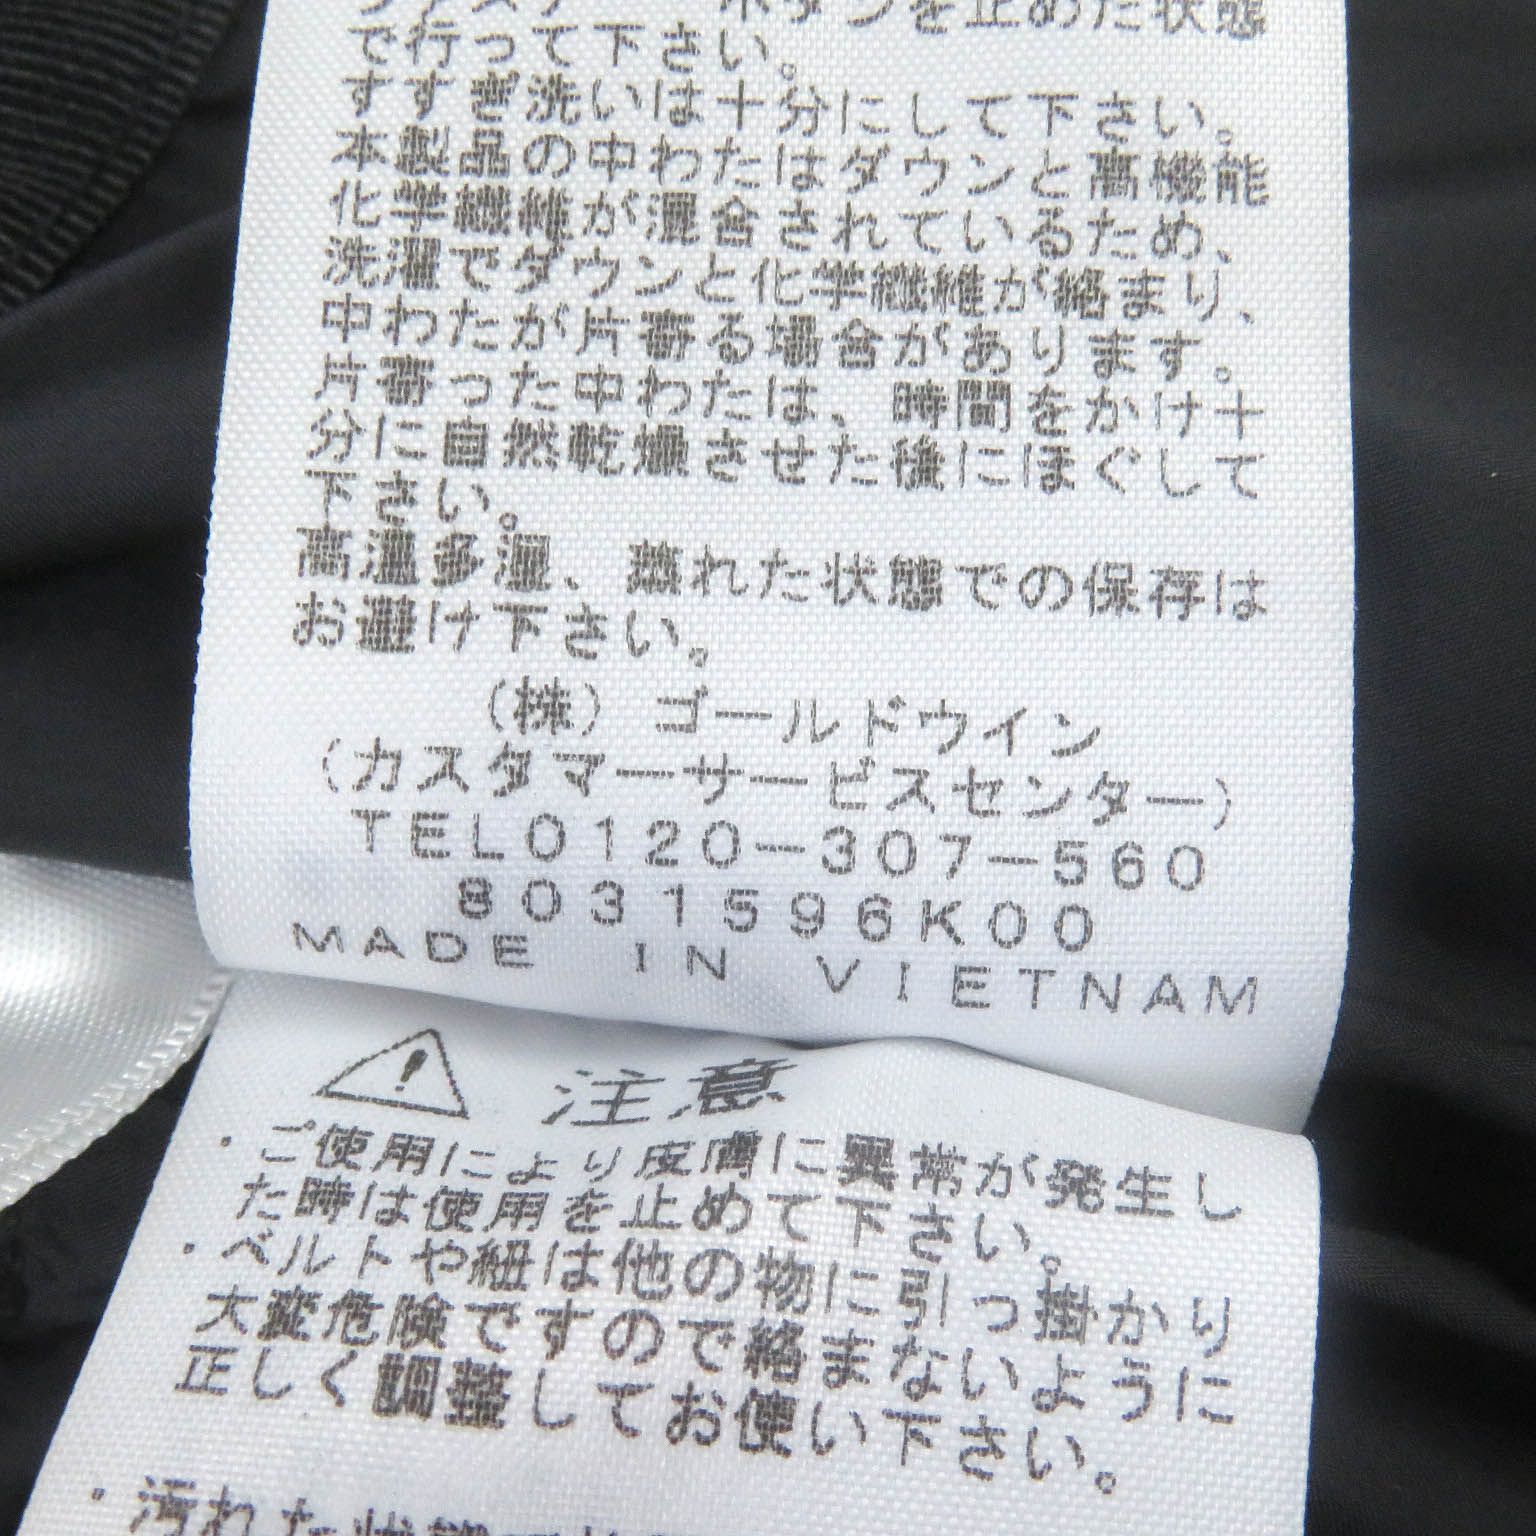 ボタンを止めた状態
で行って下さい。
すすぎ洗いは十分にして下さい。
本製品の中わたはダウンと高機能
化学繊維が混合されているため、
洗濯でダウンと化学繊維が絡まり、
中わたが片寄る場合があります。
片寄った中わたは、時間をかけ十
分に自然乾燥させた後にほぐして
下さい。
高温多湿、蒸れた状態での保存は
お避け下さい。
(株)ゴールドウイン
(カスタマーサービスセンター)
TEL0120-307-560
8031596K00
MADE IN VIETNAM
注意
・ご使用により皮膚に異常が発生し
た時は使用を止めて下さい。
・ベルトや紐は他の物に引っ掛かり
大変危険ですので絡まないように
正しく調整してお使い下さい。
・汚れた状態